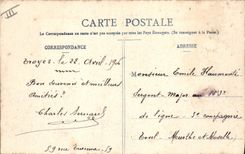 III
CARTE POSTALE
La Correspondance au recto n'est pas acceptée par tous les Pays Étrangers. (Se renseigner à la Poste)
CORRESPONDANCE
ADRESSE
Troyes, le 22 Avril 1904
Bon souvenir et meilleures
amitiés
Charles
59 rue 59
Monsieur Emile
Sergent-Major au
de ligne 3e compagnie
Toul Meurthe et Moselle